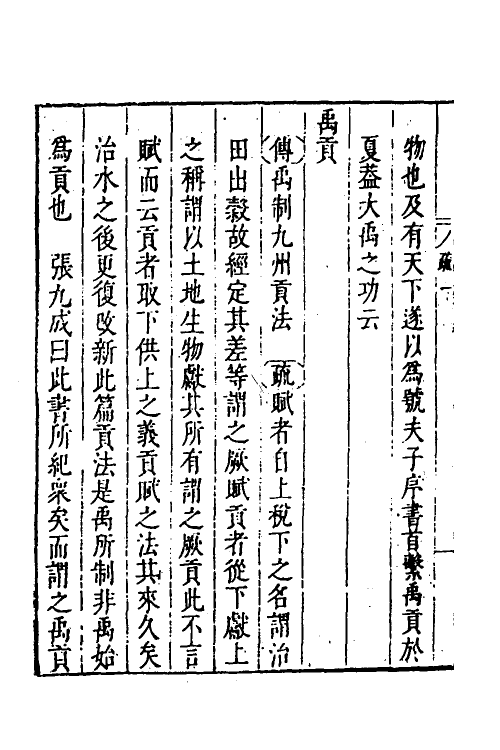 物也及有天下遂以爲號夫子序書首繫禹貢於
夏葢大禹之功云
禹貢
傳禹制九州貢法　疏賦者自上稅下之名謂治
田出穀故經定其差等謂之厥賦貢者從下獻上
之稱謂以土地生物獻其所有謂之厥貢此不言
賦而云貢者取下供上之義貢賦之法其來久矣
治水之後更復改新此篇貢法是禹所制非禹始
爲貢也　張九成曰此書所紀衆矣而謂之禹貢